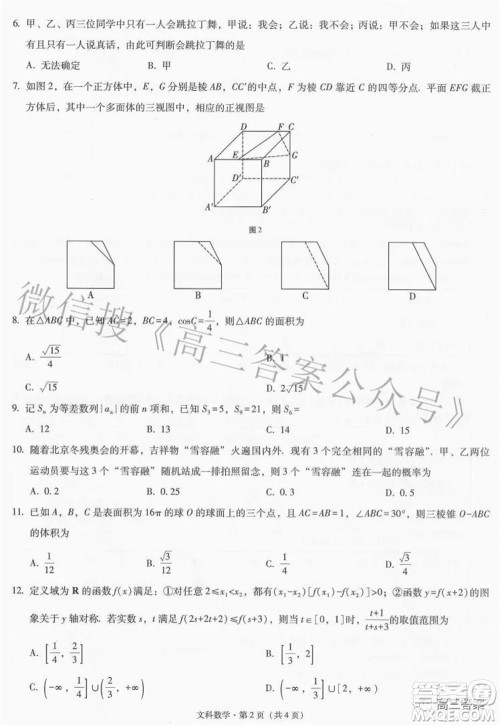 6. 甲、乙、丙三位同学中只有一人会跳拉丁舞，甲说：我会；乙说：我不会；丙说：甲不会；如果这三人中
有且只有一人说真话，由此可判断会跳拉丁舞的是
A. 无法确定 B. 甲 C. 乙 D. 丙
7. 如图 2，在一个正方体中，E，G 分别是棱 AB，CC′的中点，F 为棱 CD 靠近 C 的四等分点. 平面 EFG 截正
方体后，其中一个多面体的三视图中，相应的正视图是
D F C
A E B G
D′ C′
A′ B′
图 2
A B C D
8. 在△ABC 中，已知 AC=2，BC=4，cosC=1/4，则△ABC 的面积为
A. √15/4 B. 1
C. √15 D. 2√15
9. 记 Sₙ 为等差数列{aₙ}的前 n 项和，已知 S₃=5，S₉=21，则 S₆=
A. 12 B. 11 C. 10 D. 9
10. 随着北京冬残奥会的开幕，吉祥物“雪容融”火遍国内外. 现有 3 个完全相同的“雪容融”，甲、乙两位
运动员要与这 3 个“雪容融”随机站成一排拍照留念，则这 3 个“雪容融”连在一起的概率为
A. 0.2 B. 0.3 C. 0.4 D. 0.5
11. 已知 A，B，C 是表面积为 16π 的球 O 的球面上的三个点，且 AC=AB=1，∠ABC=30°，则三棱锥 O-ABC
的体积为
A. 1/12 B. √3/12 C. 1/4 D. √3/4
12. 定义域为 R 的函数 f(x)满足：①对任意 2≤x₁<x₂，都有(x₁-x₂)[f(x₁)-f(x₂)]>0；②函数 y=f(x+2)的图
象关于 y 轴对称. 若实数 s，t 满足 f(2s+2t+2)≤f(s+3)，则当 t∈[0，1]时，(t+1)/(t+s+3)的取值范围为
A. [1/4，2/3] B. [1/3，2]
C. (-∞，1/4]∪[2/3，+∞) D. (-∞，1/3]∪[2，+∞)
文科数学·第 2 页（共 4 页）
微信搜《高三答案公众号》
高三答案